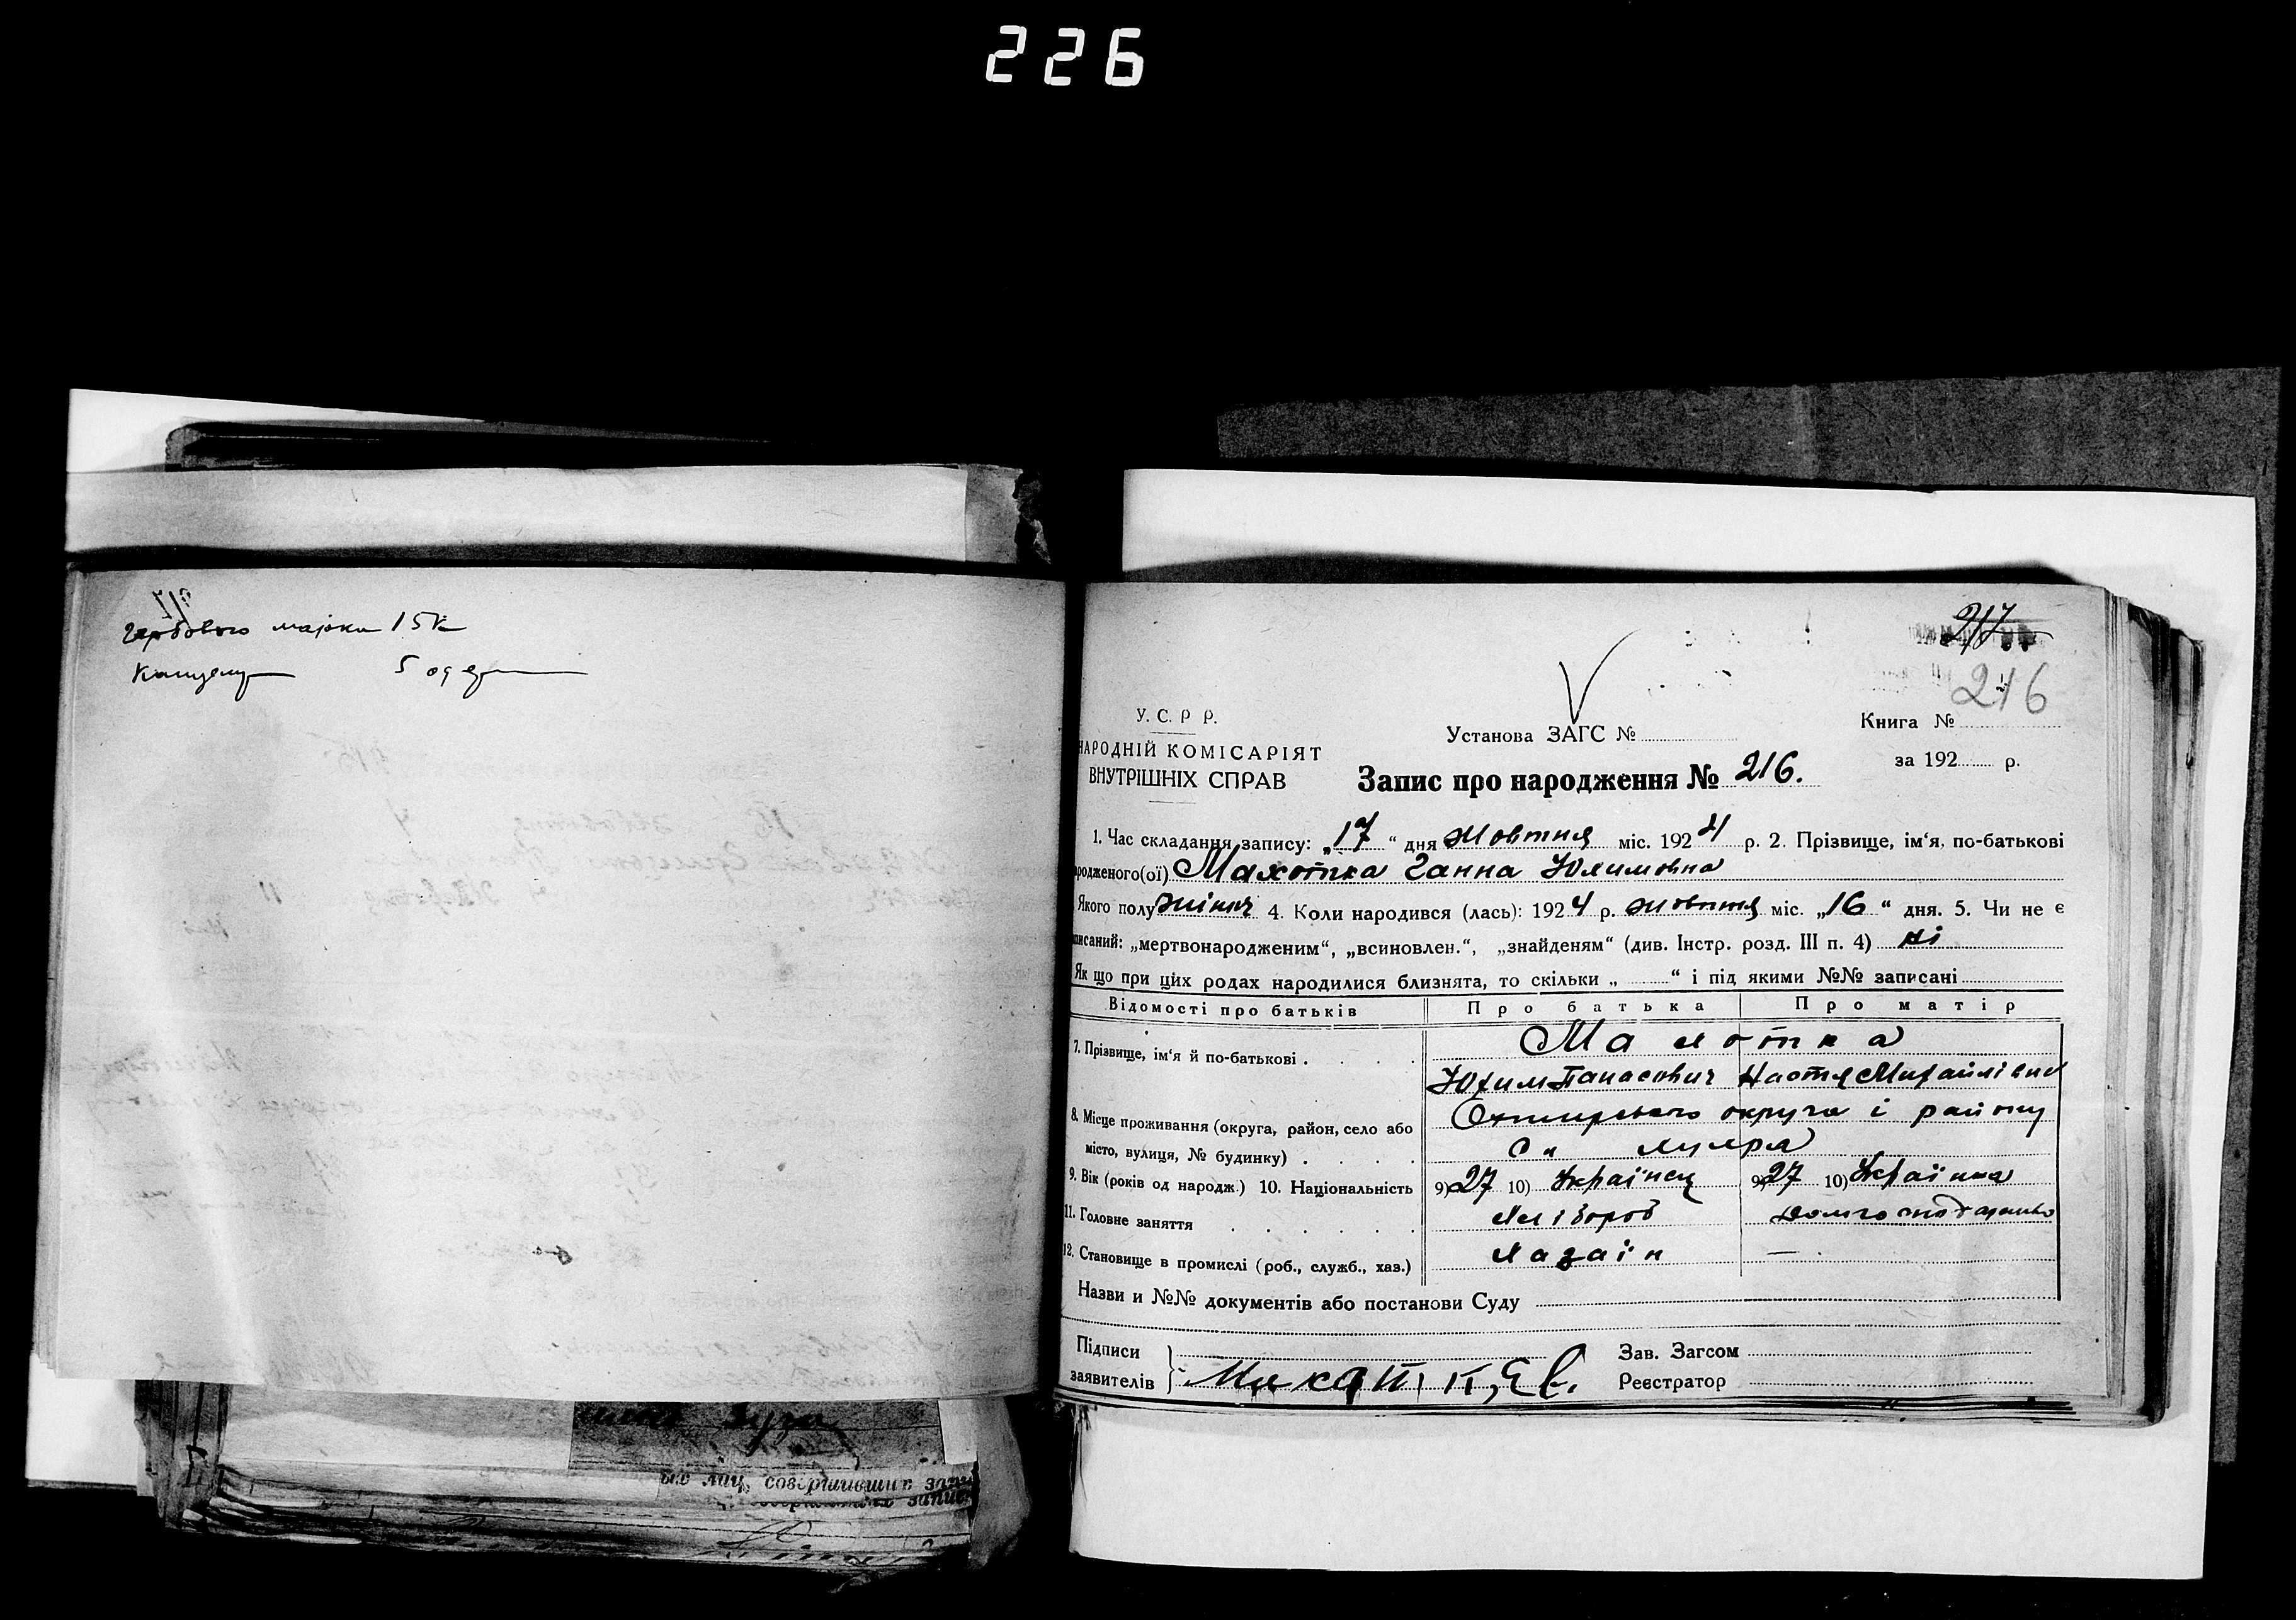 226
гербового марки 15к
217
216
У. С. Р Р.
НАРОДНІЙ КОМІСАРІЯТ
ВНУТРІШНІХ СПРАВ
Установа ЗАГС №
Книга №
за 192 р.
Запис про народження № 216.
1. Час складання запису: „17“ дня жовтня міс. 1924 р. 2. Прізвище, ім‘я, по-батькові
родженого(ої) Махотка Ганна Юхимовна
Якого полу жіноч 4. Коли народився (лась): 1924 р. жовтня міс. „16“ дня. 5. Чи не є
писаний: „мертвонародженим“, „всиновлен.“, „знайденям“ (див. Інстр. розд. III п. 4) ні
Як що при цих родах народилися близнята, то скільки „ “ і під якими №№ записані
Відомості про батьків Про батька Про матір
7. Прізвище, ім‘я й по-батькові . . . . Махотка
Юхим Панасович Настя Михайлівна
8. Місце проживання (округа, район, село або
місто, вулиця, № будинку) . . . .
Охтирсвкого округа і району
9. Вік (років од народж.) 10. Національність 9) 27 10) Українец 9) 27 10) Українка
11. Головне заняття . . . . Хлібороб
12. Становище в промислі (роб., служб., хаз.) Хазаїн —
Назви и №№ документів або постанови Суду
Підписи
заявителів
Зав. Загсом
Реєстратор
ых лиц, совершивших запи